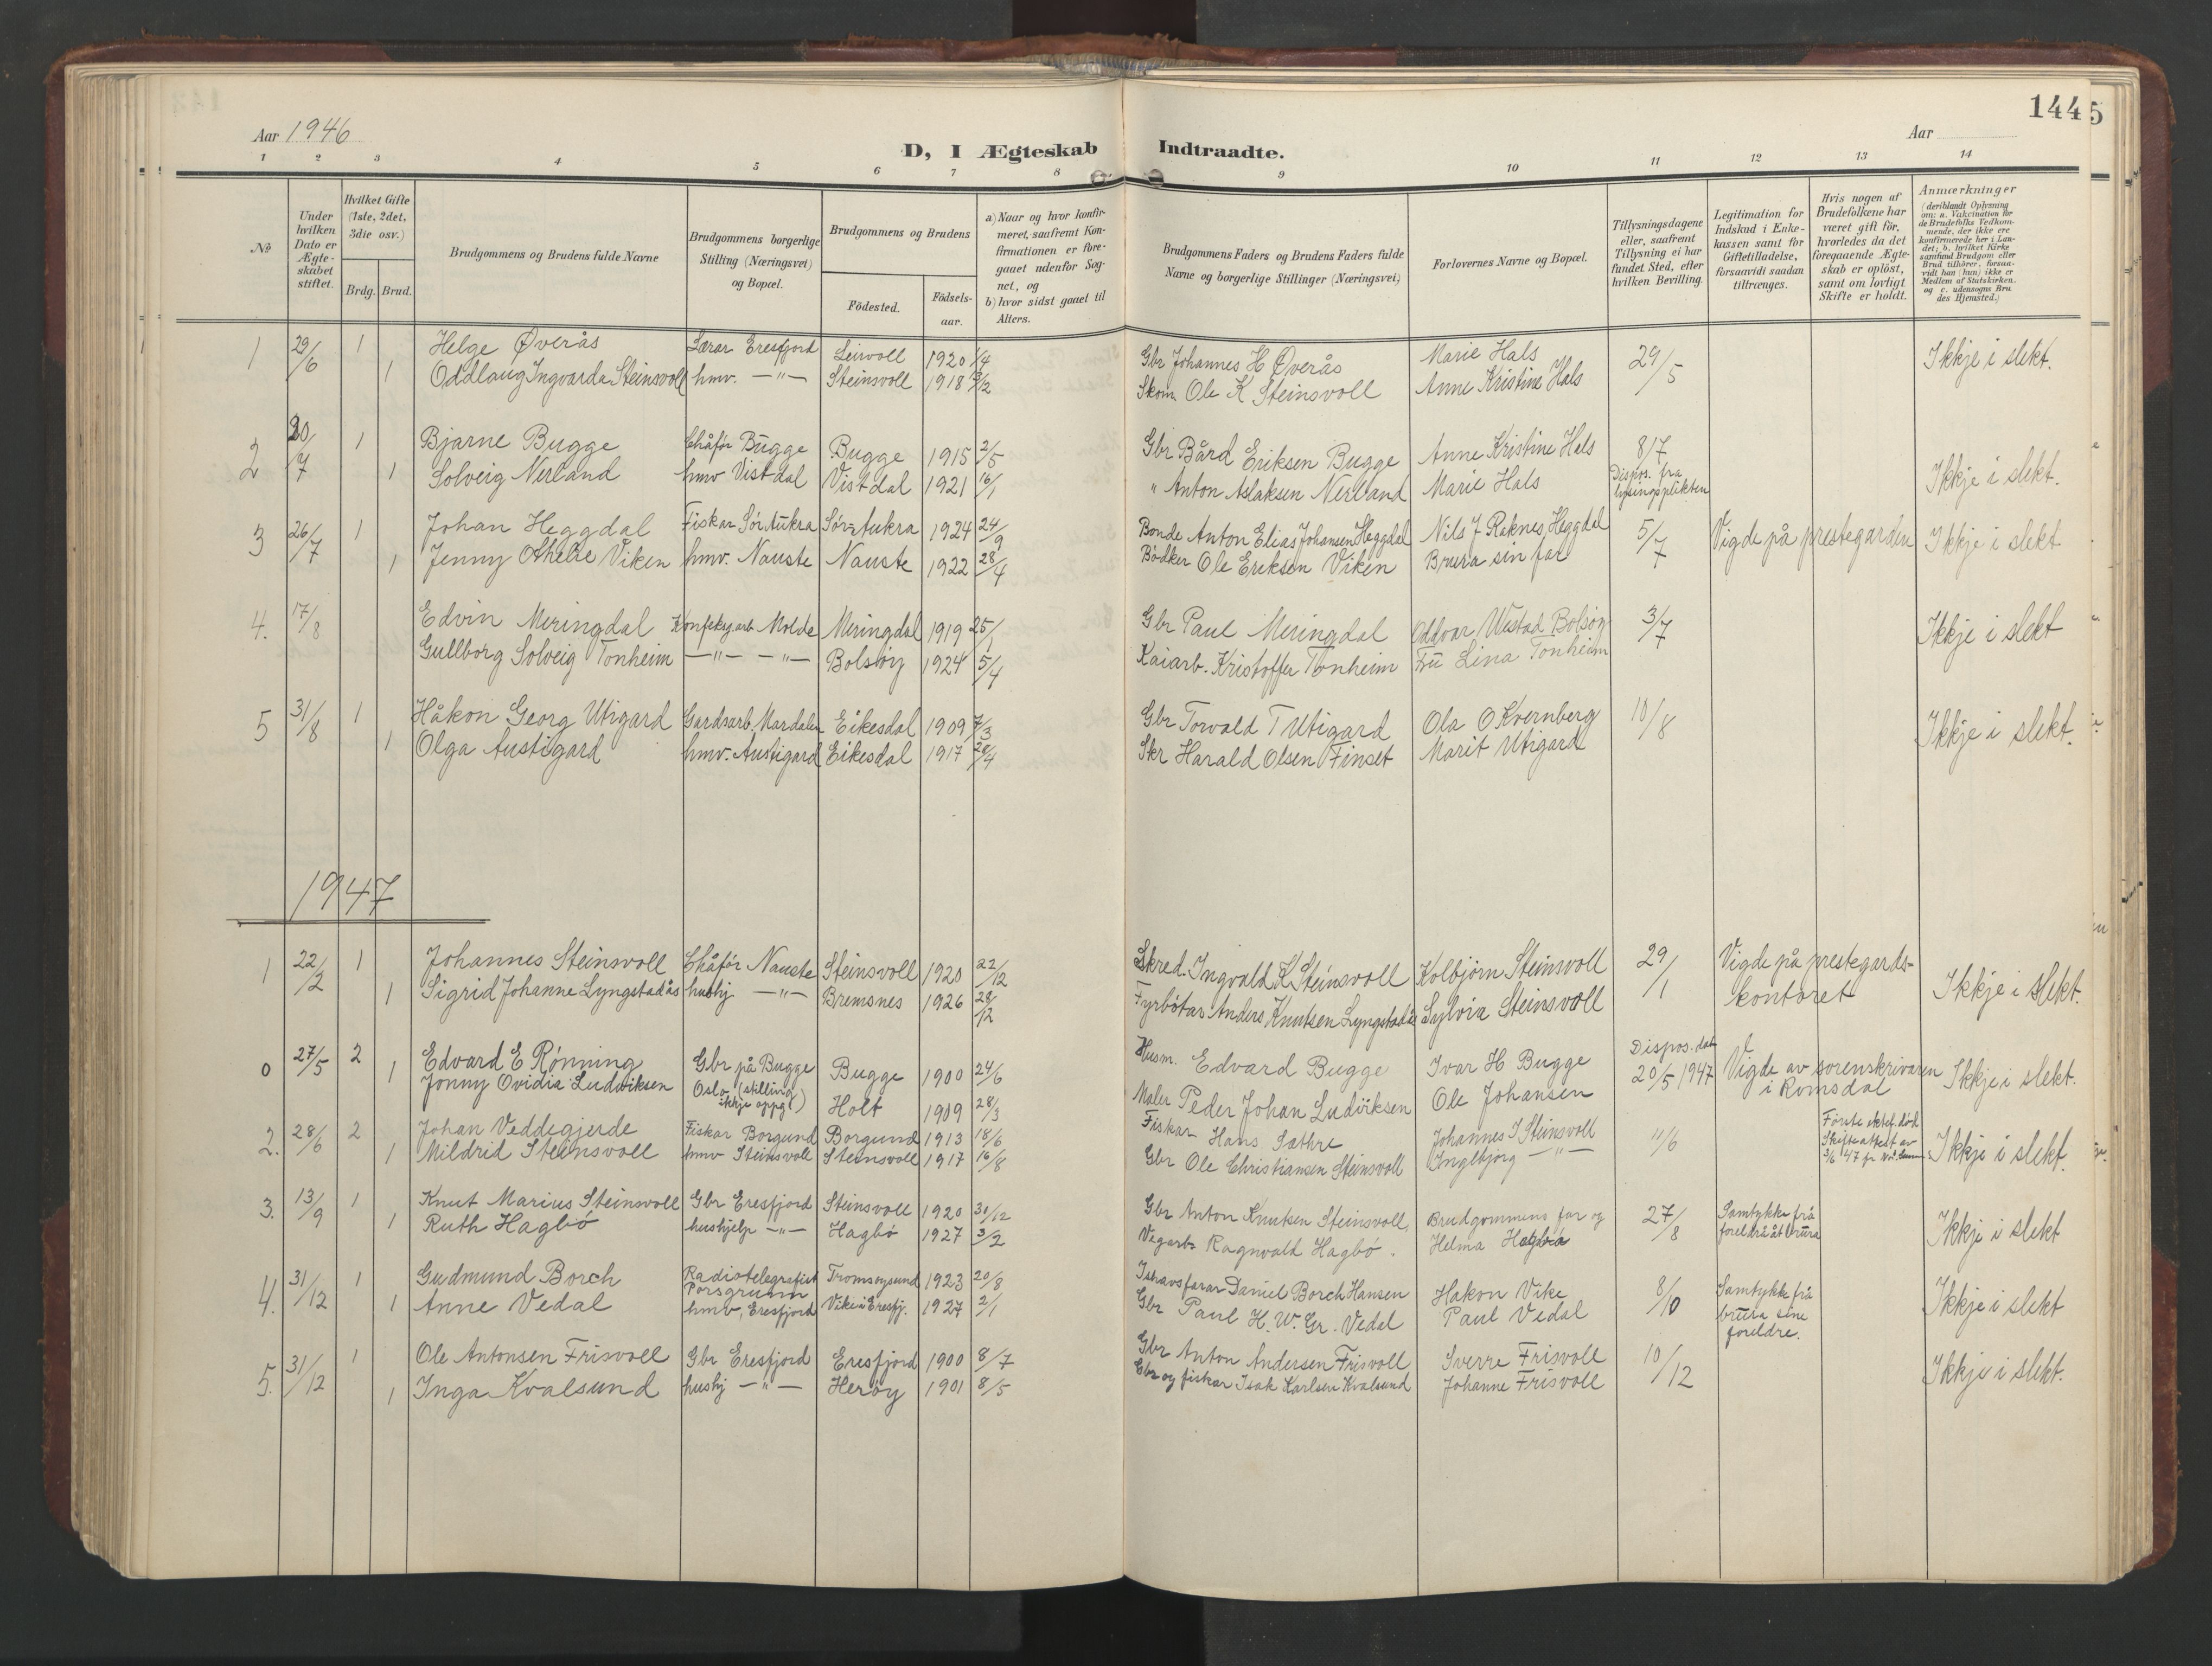 144
5
Aar 1946
Aar
D, I Ægteskab Indtraadte.
1 2 3 4 5 6 7 8 9 10 11 12 13 14
No.
Under hvilken Dato er Ægte-skabet stiftet.
Hvilket Gifte (1ste, 2det, 3die osv.)
Brdg. Brud.
Brudgommens og Brudens fulde Navne
Brudgommens borgerlige Stilling (Næringsvei) og Bopæl.
Brudgommens og Brudens
Födested.
Födsels-aar.
a) Naar og hvor konfir-meret, saafremt Kon-firmationen er fore-gaaet udenfor Sog-net, og
b) hvor sidst gaaet til Alters.
Brudgommens Faders og Brudens Faders fulde Navne og borgerlige Stillinger (Næringsvei)
Forlovernes Navne og Bopæl.
Tillysningsdagene eller, saafremt Tillysning ei har fundet Sted, efter hvilken Bevilling.
Legitimation for Indskud i Enke-kassen samt for Giftetilladelse, forsaavidt saadan tiltrænges.
Hvis nogen af Brudefolkene har været gift för, hvorledes da det foregaaende Ægte-skab er oplöst, samt om lovligt Skifte er holdt.
Anmærkninger (deriblandt Oplysning om: a. Vakcination for de Brudefolks Vedkom-mende, der ikke ere konfirmerede her i Lan-det; b. hvilket Kirke-samfund Brudgom eller Brud tilhörer, forsaa-vidt han (hun) ikke er Medlem af Statskirken, og c. udensogns Bru-des Hjemsted.)
1 29/6 1 Helge Øverås Lærar Eresfjord Leirvoll 1920 1/4 Gbr Johannes H Øverås Marie Hals 29/5 Ikkje i slekt.
1 Oddlaug Ingvarda Steinsvoll hmv. —"— Steinsvoll 1918 3/2 Skom. Ole K Steinsvoll Anne Kristine Hals
2 20/7 1 Bjarne Bugge Chåfør Bugge Bugge 1915 2/5 Gbr Bård Eriksen Bugge Anne Kristine Hals 8/7 Ikkje i slekt.
1 Solveig Nerland hmv Vistdal Vistdal 1921 16/1 " Anton Aslaksen Nerland Marie Hals Dispos. fra lysingsplikten
3 26/7 1 Johan Heggdal Fiskar Sør Aukra Sør-Aukra 1924 24/9 Bonde Anton Elias Johansen Heggdal Nils J Raknes, Heggdal 5/7 Vigde på prestegarden Ikkje i slekt
1 Jenny Viken hmv. Nauste Nauste 1922 28/4 Bødker Ole Eriksen Viken Brura sin far
4. 17/8 Edvin Meringdal Konfeksj.arb. Molde Meringdal 1919 25/1 Gbr Paul Meringdal Oddvar Bolsøy 3/7 Ikkje i slekt
Gullborg Solveig Tonheim —"— —"— Bolsøy 1924 5/4 Kaiarb. Kristoffer Tonheim Frü Lina Tonheim
5 31/8 1 Håkon Georg Utigard Gardsarb. Mardalen Eikesdal 1909 7/3 Gbr Torvald T Utigard Ola O Kvernberg 10/8 Ikkje i slekt.
1 Olga Austigard hmv. Austigard Eikesdal 1917 28/4 Skr Harald Olsen Finset Marit Utigard
1947
1 22/2 1 Johannes Steinsvoll Chåfør Nauste Steinsvoll 1920 22/12 Skred. Ingvald K Steinsvoll Kolbjørn Steinsvoll 29/1 Vigde på prestegards-kontoret Ikkje i slekt.
1 Sigrid Johanne Lyngstadås hushj —"— Bremsnes 1926 28/12 Fyrbøtar Anders Knutsen Lyngstadås Sylvia Steinsvoll
0 27/5 2 Edvard E Rønning Gbr på Bugge Bugge 1900 24/6 Husm. Edvard Bugge Ivar H Bugge Dispos. dat 20/5 1947 Vigde av sorenskrivaren i Romsdal Ikkje i slekt.
1 Jonny Ovidia Ludviksen Oslo (stilling ikkje oppg) Holt 1909 28/3 Maler Peder Johan Ludviksen Ole Johansen
2. 28/6 2 Johan Veddegjerde Fiskar Borgund Borgund 1913 18/6 Fiskar Hans Sæthre Johannes J Steinsvoll 11/6 Første ektef. død Skifteattest av 3/6 47 Ikkje i slekt.
1 Mildrid Steinsvoll hmv Steinsvoll Steinsvoll 1917 16/8 Gbr Ole Christiansen Steinsvoll Ingebjørg —"—
3. 13/9 1 Knut Marius Steinsvoll Gbr Eresfjord Steinsvoll 1920 30/12 Gbr Anton Knutsen Steinsvoll, Brudgommens far og 27/8 Samtykke frå foreldrå åt brura Ikkje i slekt
1 Ruth Hagbø hushjelp —"— Hagbø 1927 3/2 Vegarb. Ragnvald Hagbø. Helma Hagbø
4. 31/12 1 Gudmund Borch Radiotelegrafist Porsgrunn Tromsøysund 1923 20/8 Ishavsfarar Daniel Borch Hansen Hakon Vike 8/10 Samtykke frå brura sine foreldre. Ikkje i slekt
1 Anne Vedal hmv, Eresfjord Vike i Eresfj. 1927 2/1 Gbr Paul H. W. Gr. Vedal Paul Vedal
5. 31/12 1 Ole Antonsen Frisvoll Gbr Eresfjord Eresfjord 1900 8/7 Gbr Anton Andersen Frisvoll Sverre Frisvoll 10/12 Ikkje i slekt.
1 Inga Kvalsund hushj —"— Herøy 1901 8/5 Gbr og fiskar Isak Karlsen Kvalsund Johanne Frisvoll